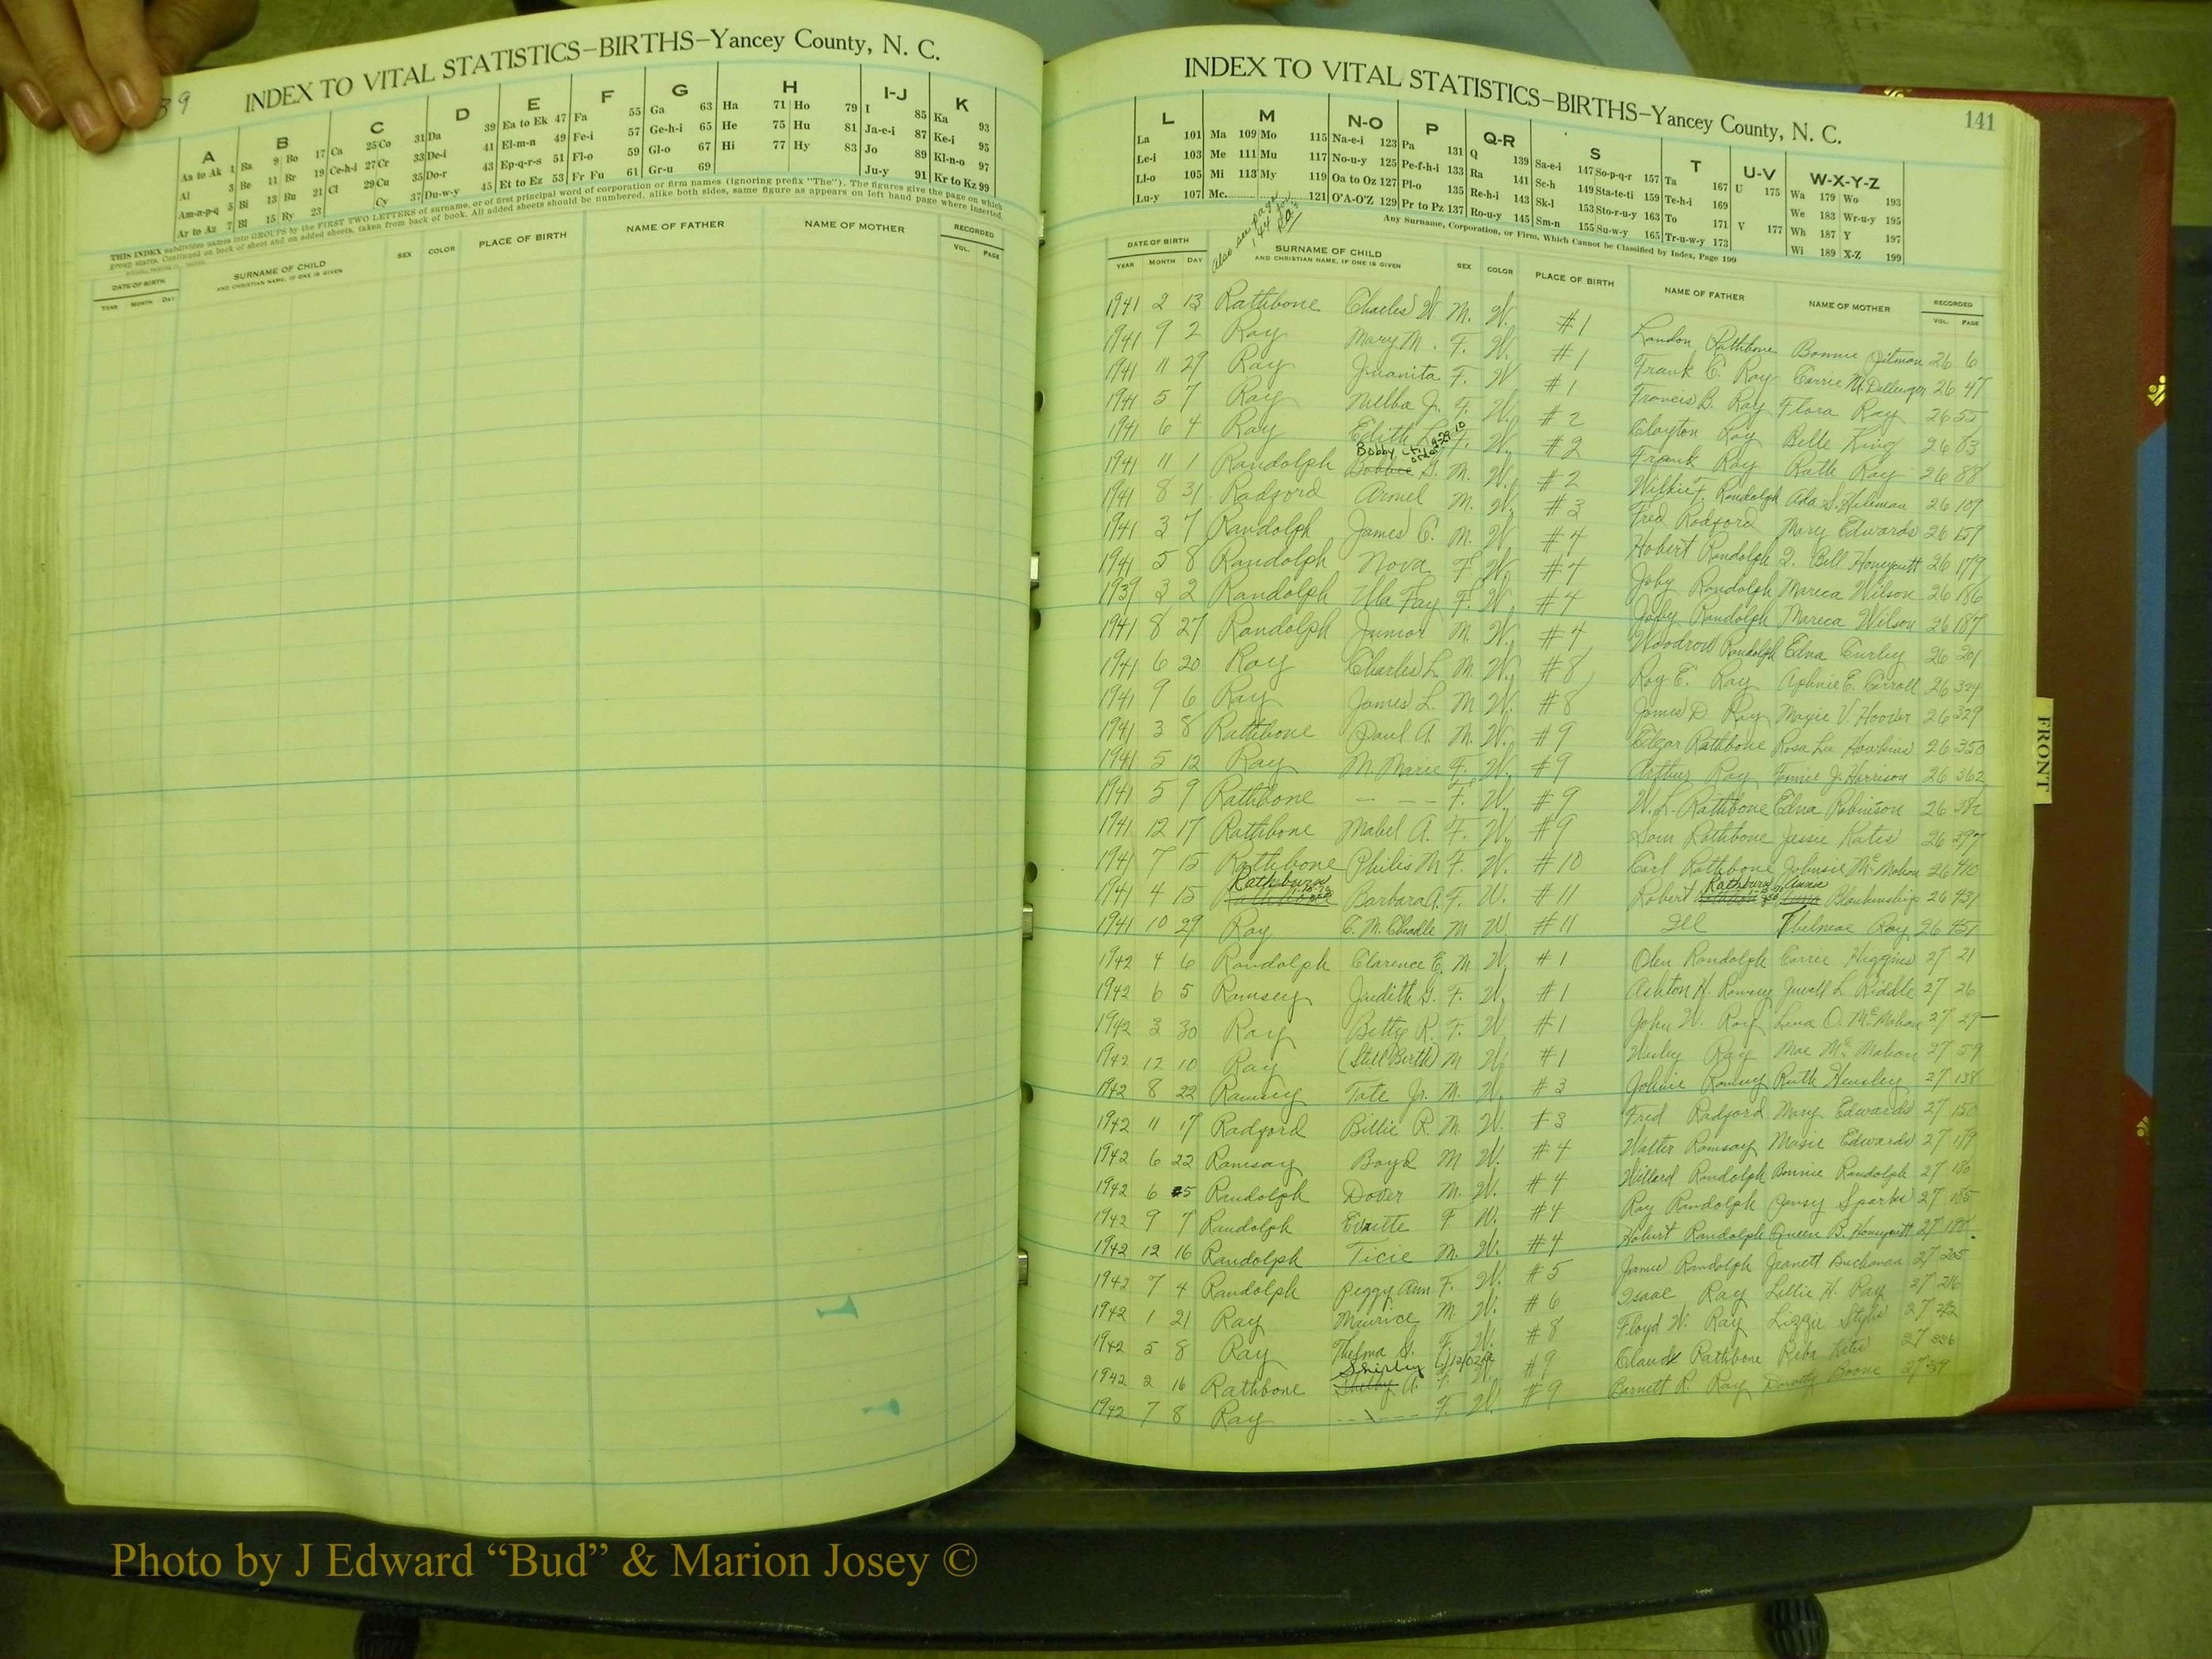 39
INDEX TO VITAL STATISTICS–BIRTHS–Yancey County, N. C.
A B C D E F G H I-J K
Aa to Ak 1 Ba 9 Bo 17 Ca 25 Co 31 Da 39 Ea to Ek 47 Fa 55 Ga 63 Ha 71 Ho 79 I 85 Ka 93
Al 3 Be 11 Br 19 Ce-h-i 27 Cr 33 De-i 41 El-m-n 49 Fe-i 57 Ge-h-i 65 He 75 Hu 81 Ja-e-i 87 Ke-i 95
Am-n-p-q 5 Bi 13 Bu 21 Cl 29 Cu 35 Do-r 43 Ep-q-r-s 51 Fl-o 59 Gl-o 67 Hi 77 Hy 83 Jo 89 Kl-n-o 97
Ar to Az 7 Bl 15 By 23 Cy 37 Du-w-y 45 Et to Ez 53 Fr Fu 61 Gr-u 69 Ju-y 91 Kr to Kz 99
THIS INDEX subdivides names into GROUPS by the FIRST TWO LETTERS of surname, or of first principal word of corporation or firm names (ignoring prefix "The"). The figures give the page on which
group starts. Continued on back of sheet and on added sheets, taken from back of book. All added sheets should be numbered, alike both sides, same figure as appears on left hand page where inserted.
DATE OF BIRTH SURNAME OF CHILD SEX COLOR PLACE OF BIRTH NAME OF FATHER NAME OF MOTHER RECORDED
YEAR MONTH DAY AND CHRISTIAN NAME, IF ONE IS GIVEN VOL. PAGE
INDEX TO VITAL STATISTICS–BIRTHS–Yancey County, N. C.
141
L M N-O P Q-R S T U-V W-X-Y-Z
La 101 Ma 109 Mo 115 Na-e-i 123 Pa 131 Q 139 Sa-e-i 147 So-p-q-r 157 Ta 167 U 175 Wa 179 Wo 193
Le-i 103 Me 111 Mu 117 No-u-y 125 Pe-f-h-i 133 Ra 141 Sc-h 149 Sta-te-ti 159 Te-h-i 169 We 183 Wr-u-y 195
Ll-o 105 Mi 113 My 119 Oa to Oz 127 Pl-o 135 Re-h-i 143 Sk-l 153 Sto-r-u-y 163 To 171 V 177 Wh 187 Y 197
Lu-y 107 Mc 121 O'A-O'Z 129 Pr to Pz 137 Ro-u-y 145 Sm-n 155 Su-w-y 165 Tr-u-w-y 173 Wi 189 X-Z 199
Any Surname, Corporation, or Firm, Which Cannot be Classified by Index, Page 199
Also see page 144 for Ra's
DATE OF BIRTH SURNAME OF CHILD SEX COLOR PLACE OF BIRTH NAME OF FATHER NAME OF MOTHER RECORDED
YEAR MONTH DAY AND CHRISTIAN NAME, IF ONE IS GIVEN VOL. PAGE
1941 2 13 Rathbone Charles W M. W. #1 Landon Rathbone Bonnie Pitman 26 6
1941 9 2 Ray Mary M. F. W. #1 Frank C. Ray Carrie M. Dellinger 26 47
1941 11 29 Ray Juanita F. W #1 Travers B. Ray Flora Ray 26 55
1941 5 7 Ray Melba Jr. F. W. #2 Clayton Ray Belle King 26 83
1941 6 4 Ray Edith L. F. W. #2 Frank Ray Ruth Ray 26 88
1941 11 1 Randolph Bobby Bobbie G. M. W. #2 Wilkie F. Randolph Ada S. Hileman 26 109
1941 8 31 Radford Armel M. W. #3 Fred Radford Mary Edwards 26 159
1941 3 7 Randolph James C. M. W #4 Hobert Randolph Q. Bell Honeycutt 26 179
1941 5 8 Randolph Nova F. W. #4 Joby Randolph Mareca Wilson 26 186
1939 3 2 Randolph Illa Fay F. W. #4 Joby Randolph Mareca Wilson 26 187
1941 8 27 Randolph Junior M. W. #4 Woodrow Randolph Edna Curley 26 201
1941 6 20 Ray Charles L. M. W. #8 Roy E. Ray Aphnie E. Carroll 26 324
1941 9 6 Ray James L. M W. #8 James D Ray Magie V. Hoover 26 329
1941 3 8 Rathbone Paul A. M. W. #9 Edgar Rathbone Rosa Lee Hawkins 26 350
1941 5 12 Ray M Marie F. W. #9 Arthur Ray Fannie J. Harrison 26 362
1941 5 9 Rathbone – – – F. W. #9 W. L. Rathbone Edna Robinson 26 382
1941 12 17 Rathbone Mabel A. F. W. #9 Sam Rathbone Jessie Kates 26 397
1941 7 15 Rathbone Philis M F. W. #10 Carl Rathbone Johnsie McMahon 26 410
1941 4 15 Rathburn Rathbone Barbara A. F. W. #11 Robert Rathburn Anna Blankenship 26 431
1941 10 29 Ray C. M. Cheadle M W #11 Ill Thelmae Ray 26 451
1942 4 6 Randolph Clarence E. M W. #1 Olen Randolph Carrie Higgins 27 21
1942 6 5 Ramsey Judith G. F. W. #1 Ashton H. Ramsey Jewell L Riddle 27 26
1942 3 30 Ray Betty R. F. W #1 John W. Ray Lena O. McMahan 27 29
1942 12 10 Ray (Still Birth) M W #1 Wesley Ray Mae McMahon 27 59
1942 8 22 Ramsey Tate Jr. M. W. #3 Johnie Ramsey Ruth Hensley 27 138
1942 11 17 Radford Billie R. M. W. #3 Fred Radford Mary Edwards 27 150
1942 6 22 Ramsay Boyd M W. #4 Walter Ramsay Masie Edwards 27 179
1942 6 5 Randolph Dover M. W. #4 Willard Randolph Bonnie Randolph 27 180
1942 9 7 Randolph Evaitte F W. #4 Roy Randolph Jansy Sparks 27 185
1942 12 16 Randolph Ticie M. W. #4 Hobert Randolph Queen B. Honeycutt 27 188
1942 7 4 Randolph Peggy Ann F. W. #5 James Randolph Jeanett Buchanan 27 205
1942 1 21 Ray Maurice M W. #6 Isaac Ray Lillie H. Ray 27 216
1942 5 8 Ray Thelma S. F. W. #8 Floyd W. Ray Lizzie Styles 27 312
1942 2 16 Rathbone Shirley Shelby A. F. W. #9 Claude Rathbone Reba Kates 27 336
1942 7 8 Ray – – – F. W. #9 Barnett R. Ray Dorothy Boone 27 39
FRONT
Photo by J Edward “Bud” & Marion Josey ©